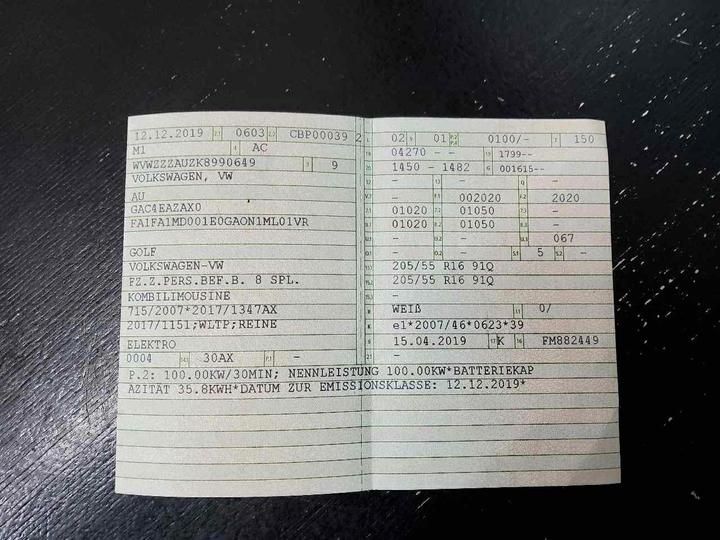 12.12.2019 2.1 0603 2.2 CBP00039 2
M1 4 AC
WVWZZZAUZK8990649 3 9
VOLKSWAGEN, VW
AU
GAC4EAZAX0
FA1FA1MD001E0GAON1ML01VR
GOLF
VOLKSWAGEN-VW
FZ.Z.PERS.BEF.B. 8 SPL.
KOMBILIMOUSINE
715/2007*2017/1347AX
2017/1151;WLTP;REINE
ELEKTRO
0004 14.1 30AX P.1 -
L 02 9 01 P.2 P.4 0100/- T 150
18 04270 - - 19 1799--
20 1450 - 1482 G 001615--
12 - 13 - Q -
V.7 - F.1 002020 F.2 2020
7.1 01020 7.2 01050 7.3 -
8.1 01020 8.2 01050 8.3 -
U.1 - U.2 - U.3 067
O.1 - O.2 - S.1 5 S.2 -
15.1 205/55 R16 91Q
15.2 205/55 R16 91Q
15.3 -
R WEIß 11 0/
K e1*2007/46*0623*39
6 15.04.2019 17 K 16 FM882449
21 -
P.2: 100.00KW/30MIN; NENNLEISTUNG 100.00KW*BATTERIEKAP
AZITÄT 35.8KWH*DATUM ZUR EMISSIONSKLASSE: 12.12.2019*